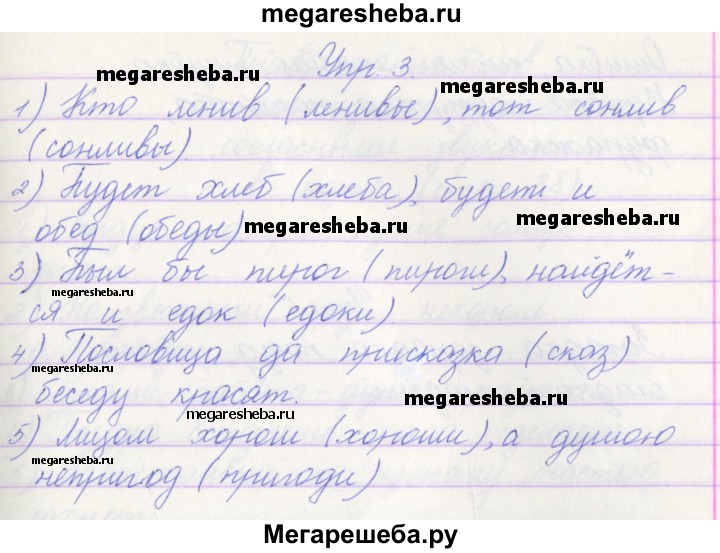 megaresheba.ru
Упр. 3.
megaresheba.ru megaresheba.ru
1) Кто ленив (ленивы), тот сонлив
(сонливы).
megaresheba.ru
2) Будет хлеб (хлеба), будет и
обед (обеды) megaresheba.ru megaresheba.ru
3) Был бы пирог (пироги), найдёт-
megaresheba.ru
ся и едок (едоки)
4) Пословица да присказка (сказ)
megaresheba.ru
беседу красят. megaresheba.ru
megaresheba.ru
5) Лицом хорош (хороши), а душою
megaresheba.ru
непригод (пригоди)
Мегарешеба.ру